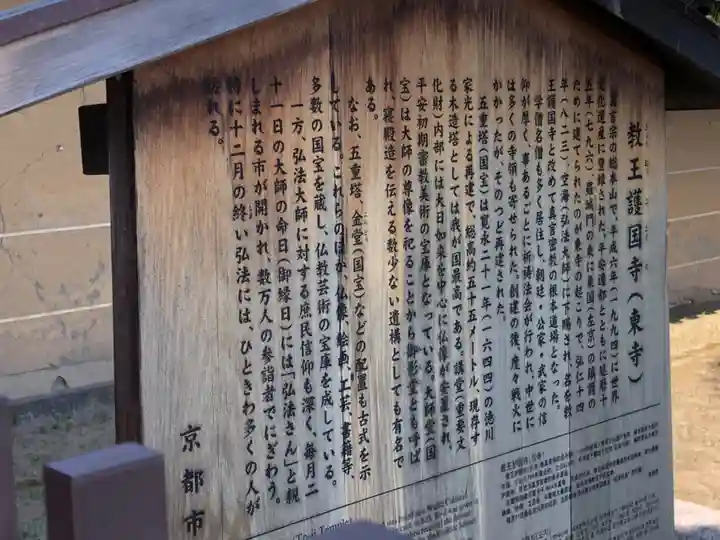 教王護国寺（東寺）
真言宗の総本山で、平成六年（一九九四）に世界
文化遺産に登録された。平安遷都とともに延暦十
五年（七九六）、羅城門の東に東国（左京）の鎮護の
ために建てられたのが東寺の起こりで、弘仁十四
年（八二三）、空海（弘法大師）に下賜され、名を教
王護国寺と改めて真言密教の根本道場となった。
学僧名僧も多く居住し、朝廷・公家・武家の信
仰が厚く、事あるごとに祈祷法会が行われ、中世に
は多くの寺領も寄せられた。創建の後、度々戦火に
かかったが、そのつど再建された。
五重塔（国宝）は寛永二十一年（一六四四）の徳川
家光による再建で、総高約五十五メートル、現存す
る木造塔としては我が国最高である。講堂（重要文
化財）内部には大日如来を中心に仏像が安置され、
平安初期密教美術の宝庫となっている。大師堂（国
宝）は大師の尊像を祀ることから御影堂とも呼ば
れ、寝殿造を伝える数少ない遺構としても有名で
ある。
なお、五重塔、金堂（国宝）などの配置も古式を示
している。これらのほか、仏像、絵画、工芸、書籍等、
多数の国宝を蔵し、仏教芸術の宝庫を成している。
一方、弘法大師に対する庶民信仰も深く、毎月二
十一日の大師の命日（御縁日）には「弘法さん」と親
しまれる市が開かれ、数万人の参詣者でにぎわう。
特に十二月の終い弘法には、ひときわ多くの人が
訪れる。
京都市